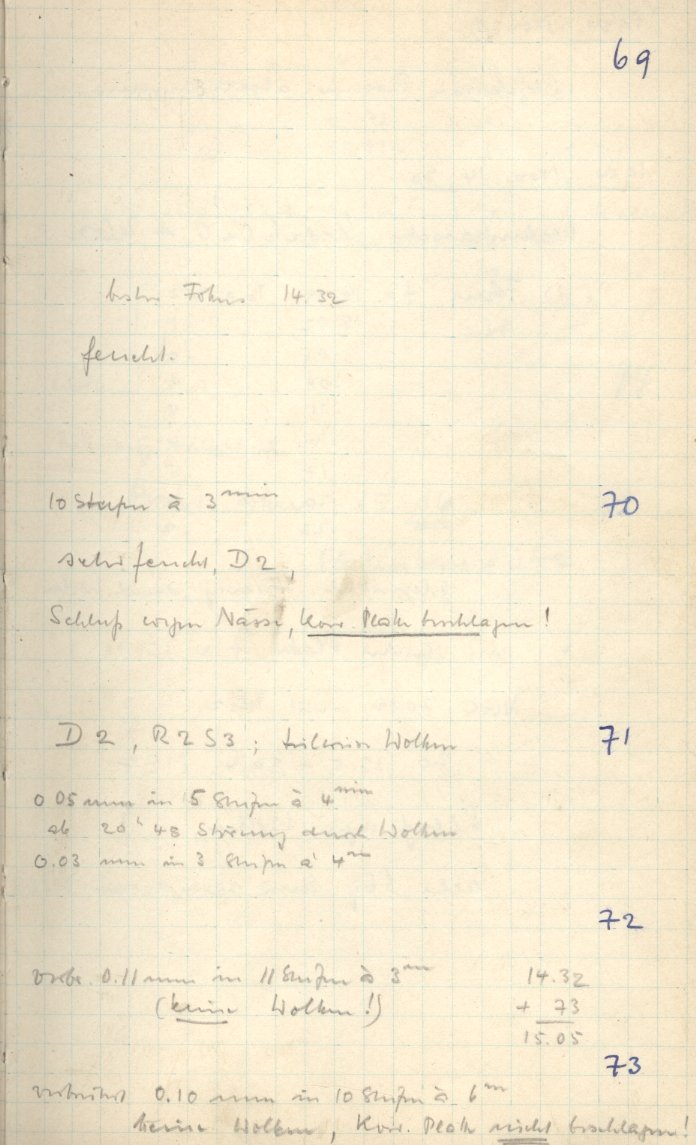 69
bester Fokus 14.32
feucht.
10 Stufen à 3 min
70
sehr feucht, D2,
Schluß wegen Nässe, Korr. Platte beschlagen!
D2, R2 S3; teilweise Wolken
71
0.05 mm in 5 Stufen à 4 min
ab 20h 48 Störung durch Wolken
0.03 mm in 3 Stufen à 4m
72
0.11 mm in 11 Stufen à 3m
14.32
(keine Wolken!)
+ 73
15.05
73
0.10 mm in 10 Stufen à 6m
keine Wolken, Korr. Platte nicht beschlagen!